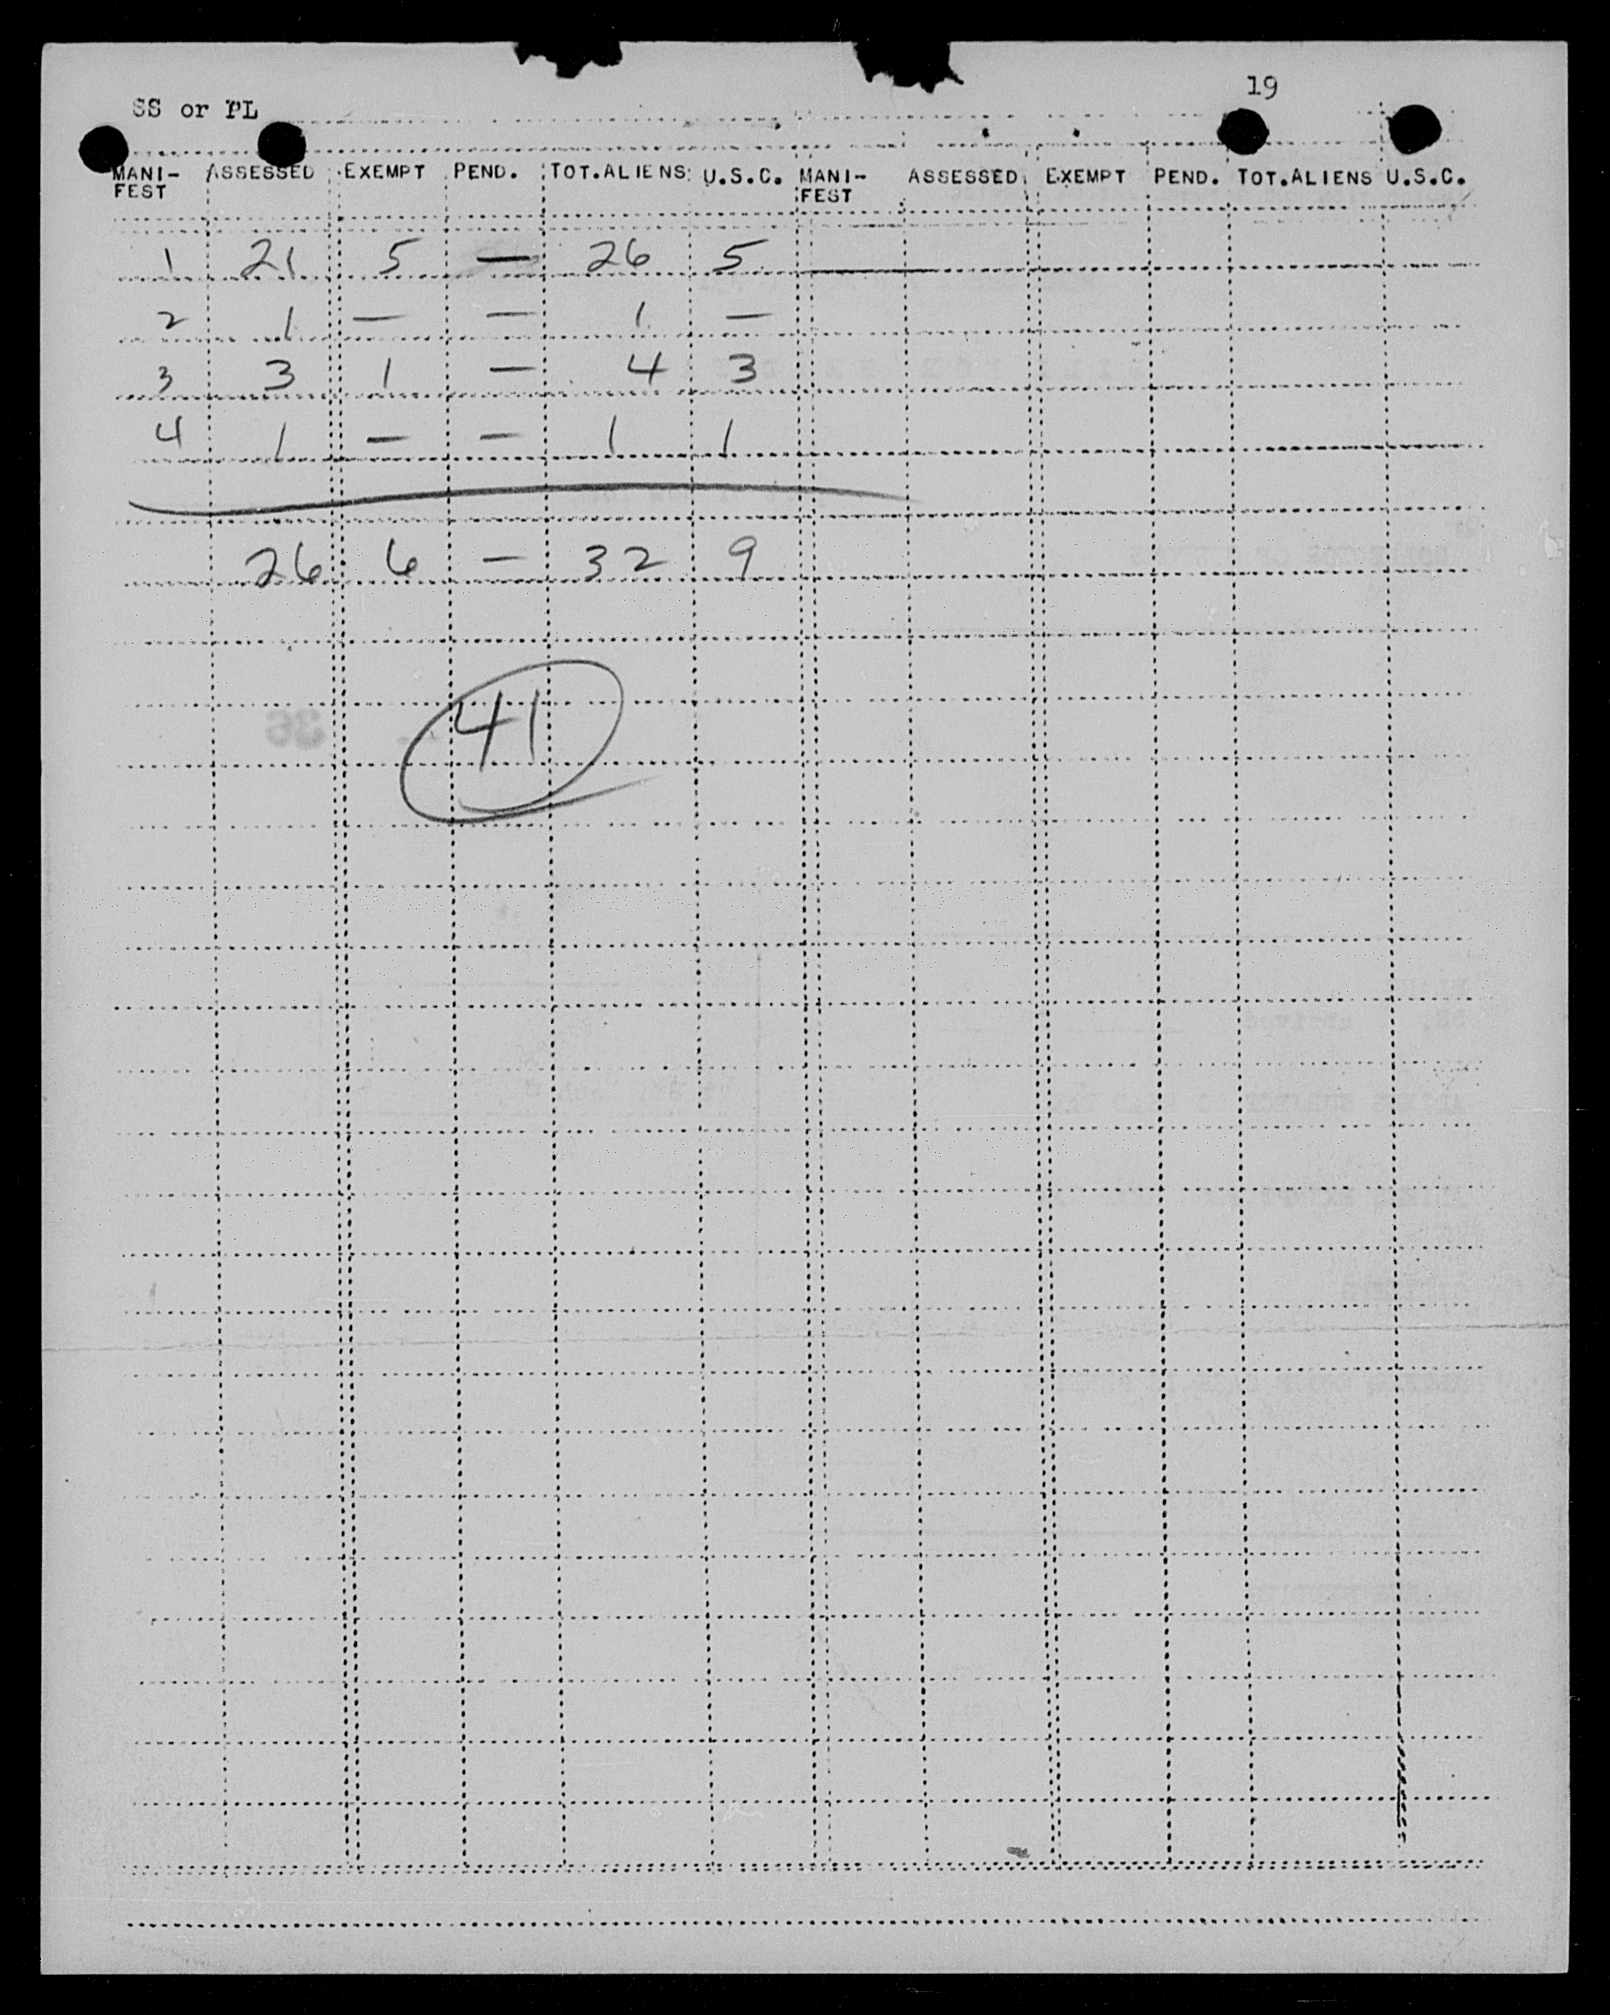 19
SS or PL
MANI-FEST ASSESSED EXEMPT PEND. TOT.ALIENS U.S.C. MANI-FEST ASSESSED EXEMPT PEND. TOT.ALIENS U.S.C.
1 21 5 — 26 5
2 1 — — 1 —
3 3 1 — 4 3
4 1 — — 1 1
26 6 — 32 9
41